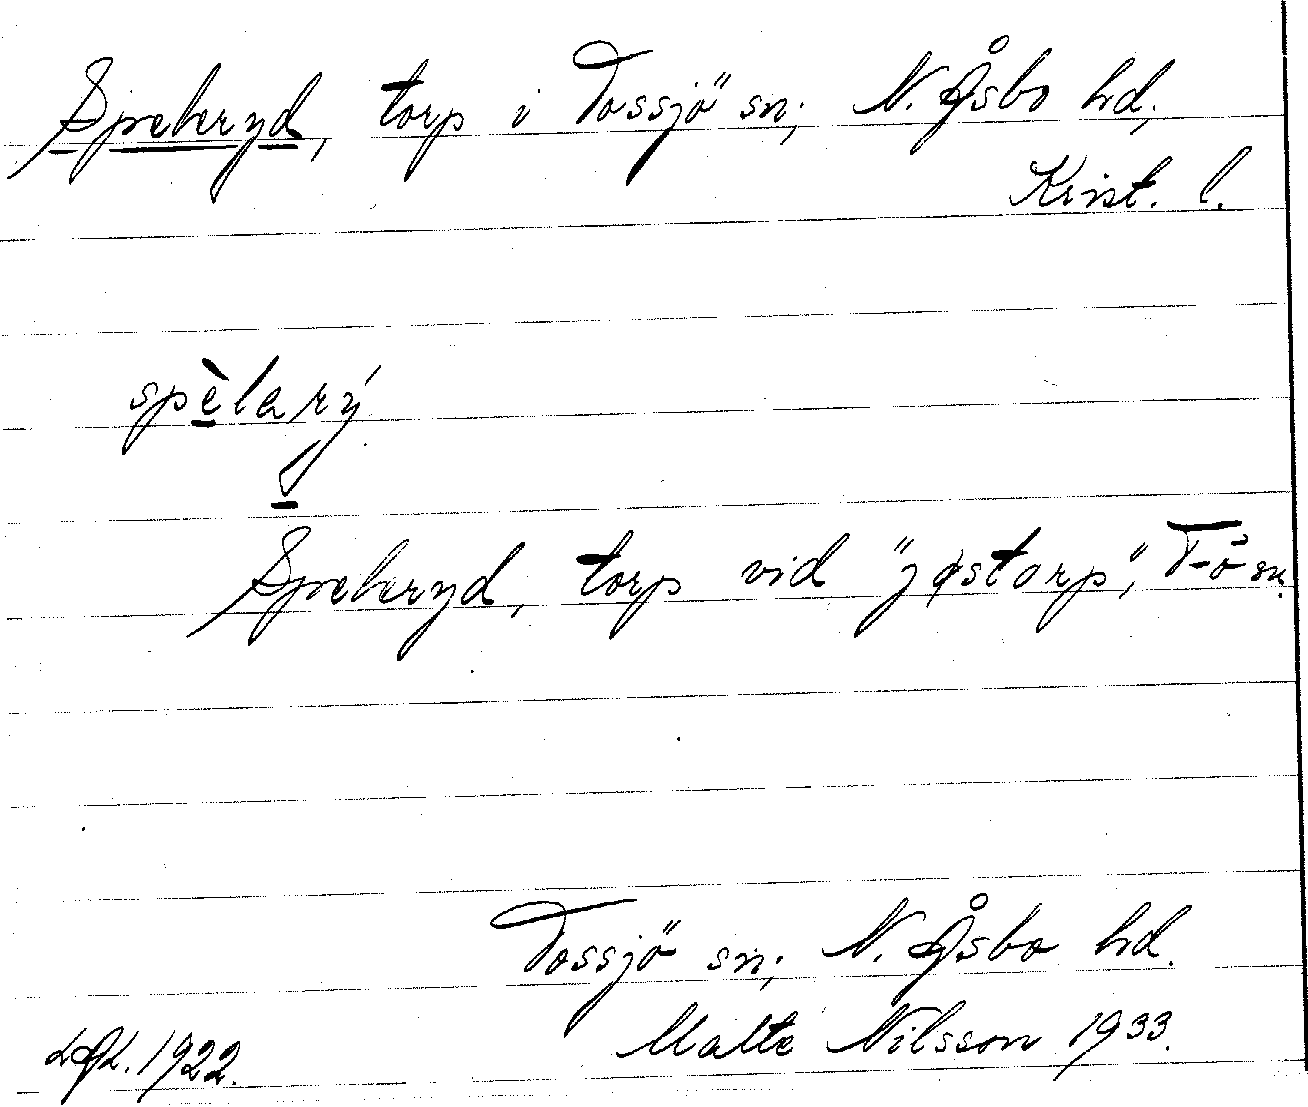 Speleryd, torp i Tossjö sn; N. Åsbo hd;
Krist. l.
spèlarý
Speleryd, torp vid "jøstorp", T-ö sn.
Tossjö sn; N. Åsbo hd.
Malte Nilsson 1933.
1922.